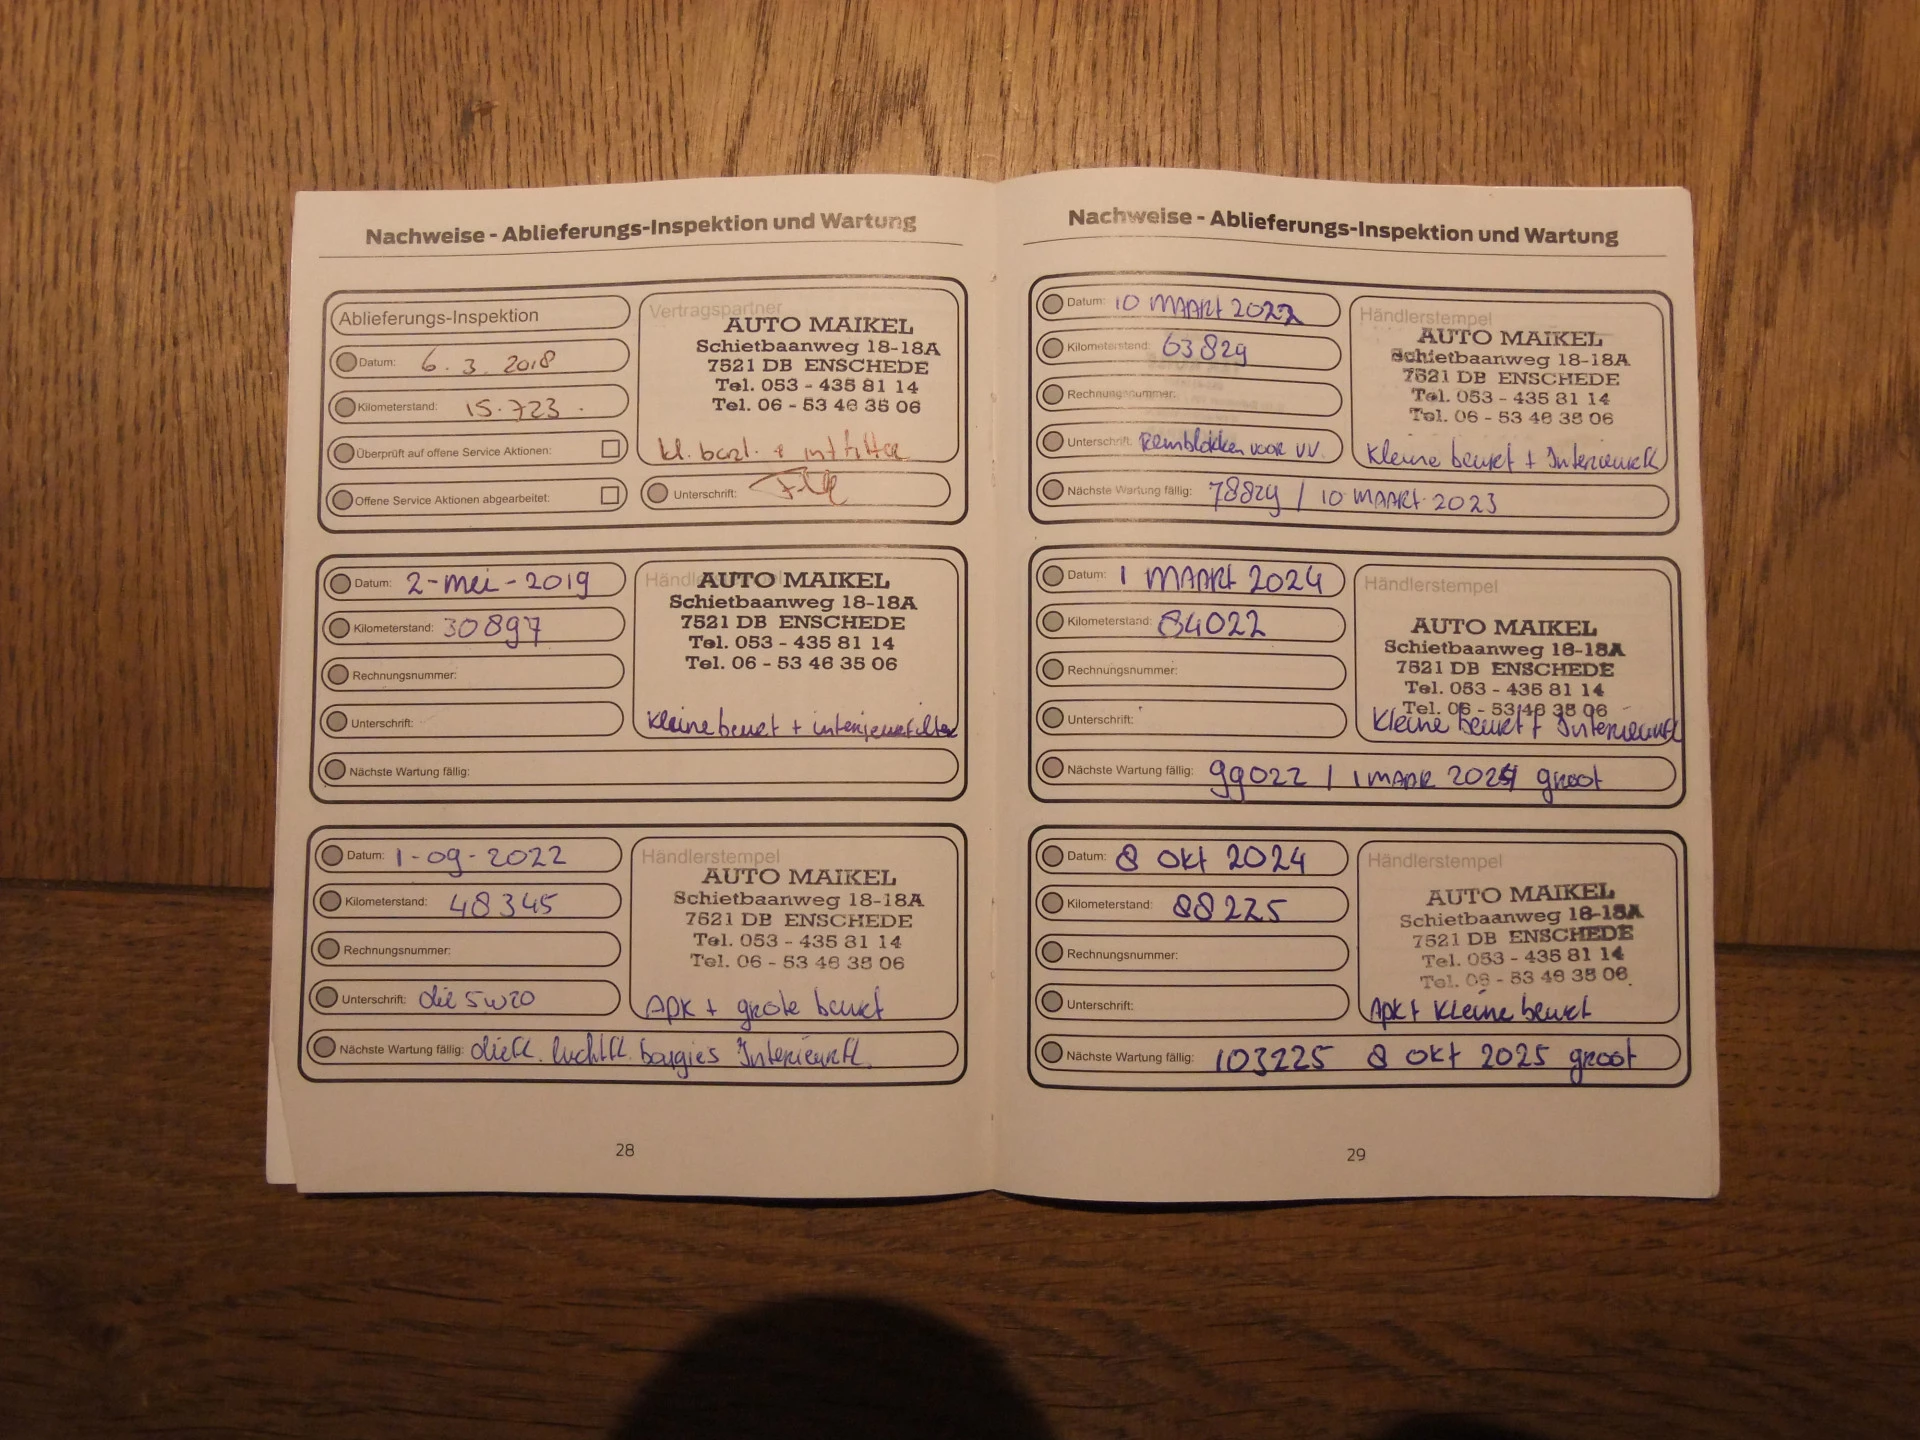 Nachweise - Ablieferungs-Inspektion und Wartung
Ablieferungs-Inspektion
Datum: 6.3.2018
Kilometerstand: 15.723.
Überprüft auf offene Service Aktionen:
Offene Service Aktionen abgearbeitet:
Vertragspartner
AUTO MAIKEL
Schietbaanweg 18-18A
7521 DB ENSCHEDE
Tel. 053 - 435 81 14
Tel. 06 - 53 46 35 06
kl. + int filter
Unterschrift:
Datum: 2-mei-2019
Kilometerstand: 30897
Rechnungsnummer:
Unterschrift:
Händlerstempel
AUTO MAIKEL
Schietbaanweg 18-18A
7521 DB ENSCHEDE
Tel. 053 - 435 81 14
Tel. 06 - 53 46 35 06
kleine beurt + interieurfilter
Nächste Wartung fällig:
Datum: 1-09-2022
Kilometerstand: 48345
Rechnungsnummer:
Unterschrift: olie 5w20
Händlerstempel
AUTO MAIKEL
Schietbaanweg 18-18A
7521 DB ENSCHEDE
Tel. 053 - 435 81 14
Tel. 06 - 53 46 35 06
APK + grote beurt
Nächste Wartung fällig: oliefl. luchtfl. bougies Interieurfl.
28
Nachweise - Ablieferungs-Inspektion und Wartung
Datum: 10 MAART 2022
Kilometerstand: 63829
Rechnungsnummer:
Unterschrift: Remblokken voor VV.
Händlerstempel
AUTO MAIKEL
Schietbaanweg 18-18A
7521 DB ENSCHEDE
Tel. 053 - 435 81 14
Tel. 06 - 53 46 35 06
Kleine beurt + Interieurfl
Nächste Wartung fällig: 78829 / 10 MAART 2023
Datum: 1 MAART 2024
Kilometerstand: 84022
Rechnungsnummer:
Unterschrift:
Händlerstempel
AUTO MAIKEL
Schietbaanweg 18-18A
7521 DB ENSCHEDE
Tel. 053 - 435 81 14
Tel. 06 - 53 46 35 06
Kleine beurt + Interieurfl
Nächste Wartung fällig: 99022 / 1 MAAR groot
Datum: 8 okt 2024
Kilometerstand: 88225
Rechnungsnummer:
Unterschrift:
Händlerstempel
AUTO MAIKEL
Schietbaanweg 18-18A
7521 DB ENSCHEDE
Tel. 053 - 435 81 14
Tel. 06 - 53 46 35 06
Apk + Kleine beurt
Nächste Wartung fällig: 103225 8 okt 2025 groot
29